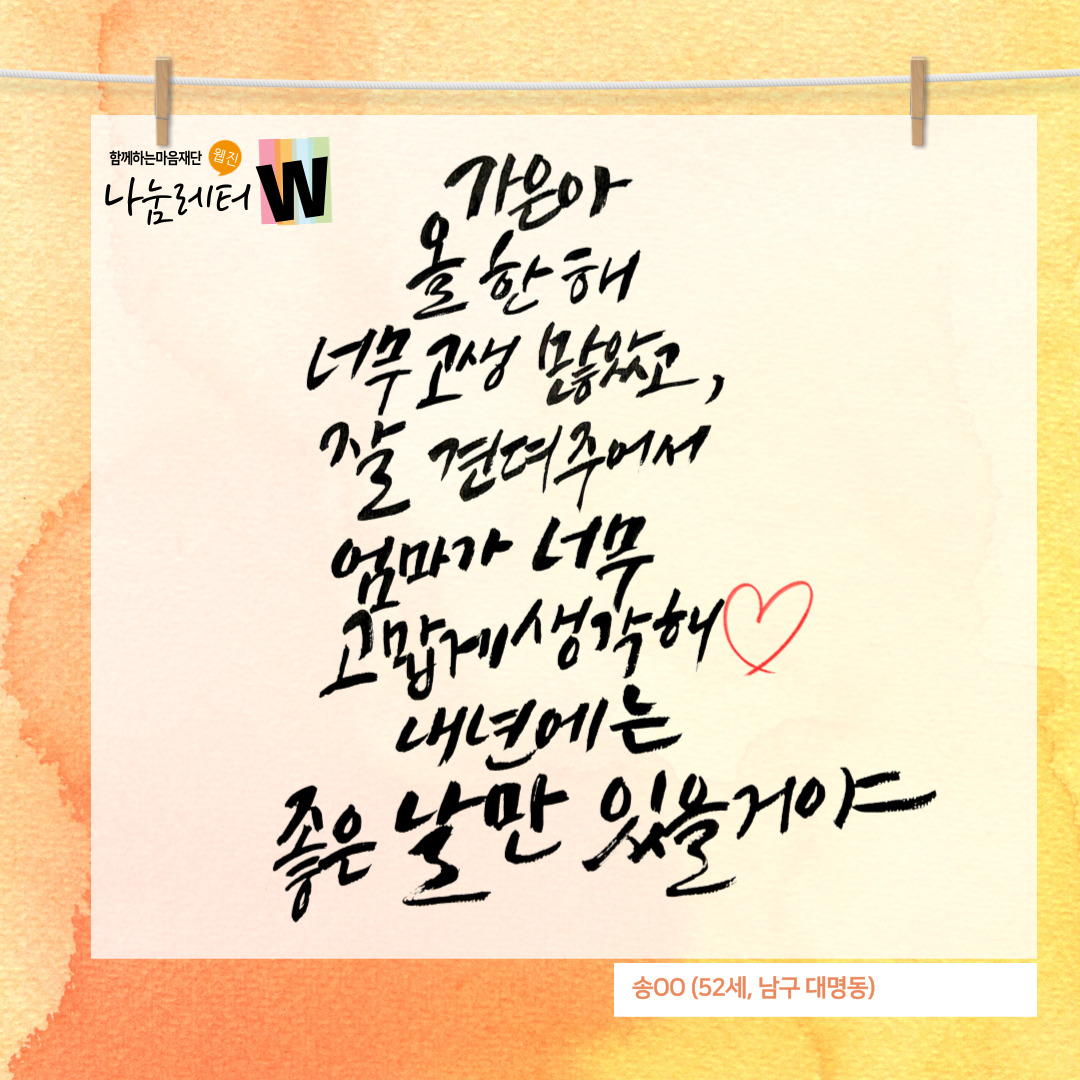 함께하는마음재단 웹진
나눔레터 W
가은아
올 한 해
너무 고생 많았고,
잘 견뎌주어서
엄마가 너무
고맙게 생각해
내년에는
좋은 날만 있을거야
송OO (52세, 남구 대명동)